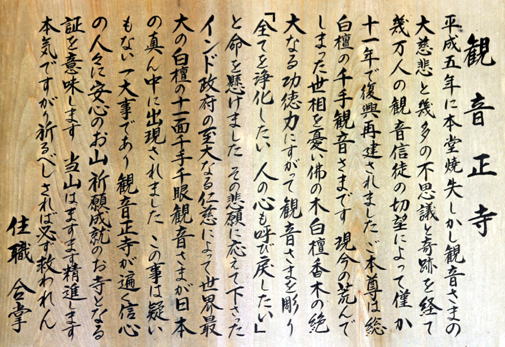 観音正寺
平成五年に本堂焼失しかし観音さまの
大慈悲と幾多の不思議と奇跡を経て
幾万人の観音信徒の切望によって僅か
十一年で復興再建されましたご本尊は総
白檀の千手観音さまです 現今の荒んで
しまった世相を憂い佛の木白檀香木の絶
大なる功徳力にすがって観音さまを彫り
「全てを浄化したい 人の心も呼び戻したい」
と命を懸けました その悲願に応えて下さった
インド政府の至大なる仁慈によって世界最
大の白檀の十一面千手千眼観音さまが日本
の真ん中に出現されました この事は疑い
もない一大事であり観音正寺が遍く信心
の人々に安心のお山祈願成就のお寺となる
証を意味します 当山はますます精進します
本気ですがり祈るべしされば必ず救われん
住職 合掌